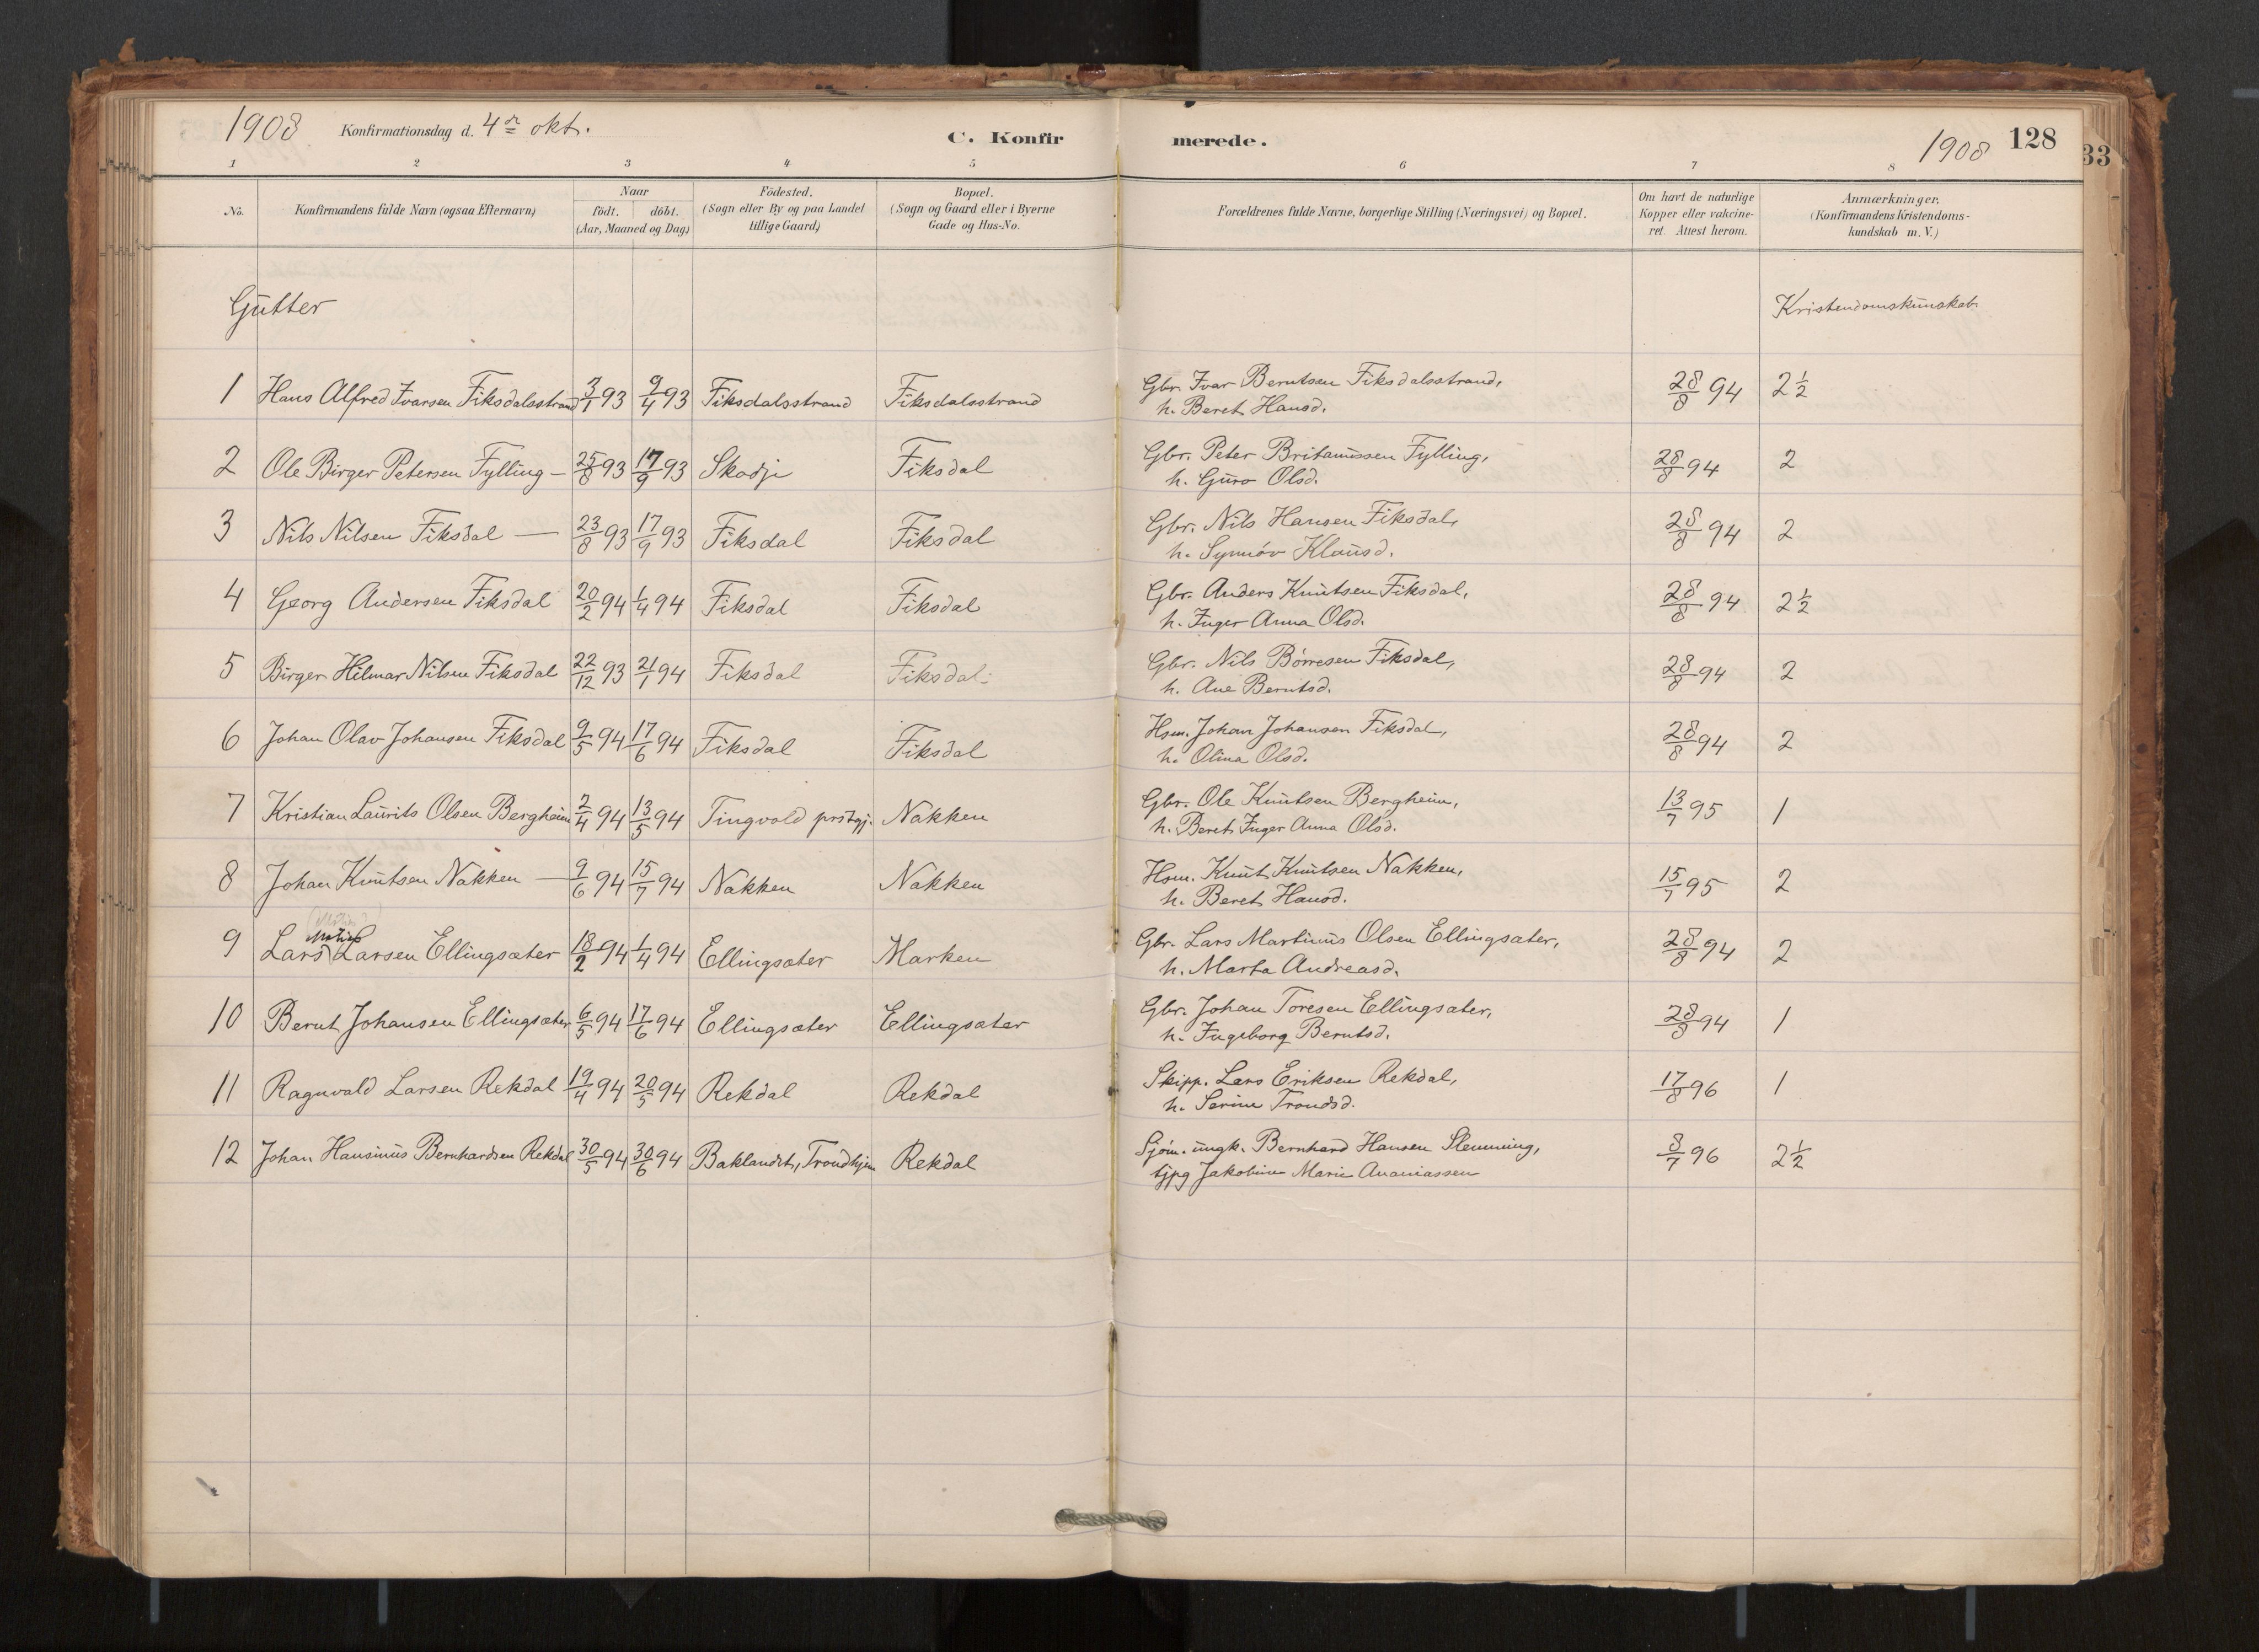 1908 Konfirmationsdag d. 4de okt. C. Konfir merede. 1908 128
33
1 2 3 4 5 6 7 8
No. Konfirmandens fulde Navn (ogsaa Efternavn) Naar födt. döbt. (Aar, Maaned og Dag) Födested. (Sogn eller By og paa Landet tillige Gaard) Bopæl. (Sogn og Gaard eller i Byerne Gade og Hus-No. Forældrenes fulde Navne, borgerlige Stilling (Næringsvei) og Bopæl. Om havt de naturlige Kopper eller vakcineret. Attest herom. Anmærkninger. (Konfirmandens Kristendomskundskab m. V.)
Gutter Kristendomskunskab.
1 Hans Alfred Ivarsen Fiksdalsstrand 3/1 93 9/4 93 Fiksdalsstrand Fiksdalsstrand Gbr. Ivar Berntsen Fiksdalsstrand, 28/8 94 2 1/2
h. Beret Hansd.
2 Ole Birger Petersen Fylling — 25/8 93 17/9 93 Skodje Fiksdal Gbr. Peter Britanussen Fylling, 28/8 94 2
h. Guro Olsd.
3 Nils Nilsen Fiksdal — 23/8 93 17/9 93 Fiksdal Fiksdal Gbr. Nils Hansen Fiksdal, 28/8 94 2
h. Synnöv Klausd.
4 Georg Andersen Fiksdal 20/2 94 1/4 94 Fiksdal Fiksdal Gbr. Anders Knutsen Fiksdal, 28/8 94 2 1/2
h. Inger Anna Olsd.
5 Birger Hilmar Nilsen Fiksdal 22/12 93 21/1 94 Fiksdal Fiksdal. Gbr. Nils Börresen Fiksdal, 28/8 94 2
h. Ane Berntsd.
6 Johan Olav Johansen Fiksdal 9/5 94 17/6 94 Fiksdal Fiksdal Hsm. Johan Johansen Fiksdal, 28/8 94 2
h. Olina Olsd.
7 Kristian Laurits Olsen Bergheim 2/4 94 13/5 94 Tingvold prstgj. Nakken Gbr. Ole Knutsen Bergheim, 13/7 95 1
h. Beret Inger Anna Olsd.
8 Johan Knutsen Nakken — 9/6 94 15/7 94 Nakken Nakken Hsm. Knut Knutsen Nakken, 15/7 95 2
h. Beret Hansd.
9 Lars Larsen Ellingsæter 18/2 94 1/4 94 Ellingsæter Marken Gbr. Lars Martinus Olsen Ellingsæter, 28/8 94 2
h. Marta Andreasd.
10 Bernt Johansen Ellingsæter 6/5 94 17/6 94 Ellingsæter Ellingsæter Gbr. Johan Toresen Ellingsæter, 28/8 94 1
h. Ingeborg Berntsd.
11 Ragnvald Larsen Rekdal 19/4 94 20/5 94 Rekdal Rekdal Skipp. Lars Eriksen Rekdal, 17/8 96 1
h. Serine Trondsd.
12 Johan Hansinus Bernhardsen Rekdal 30/5 94 30/6 94 Baklandet, Trondhjem Rekdal Sjöm. ungk. Bernhard Hansen Slemming, 8/7 96 2 1/2
tjpg Jakobine Marie Ananiassen